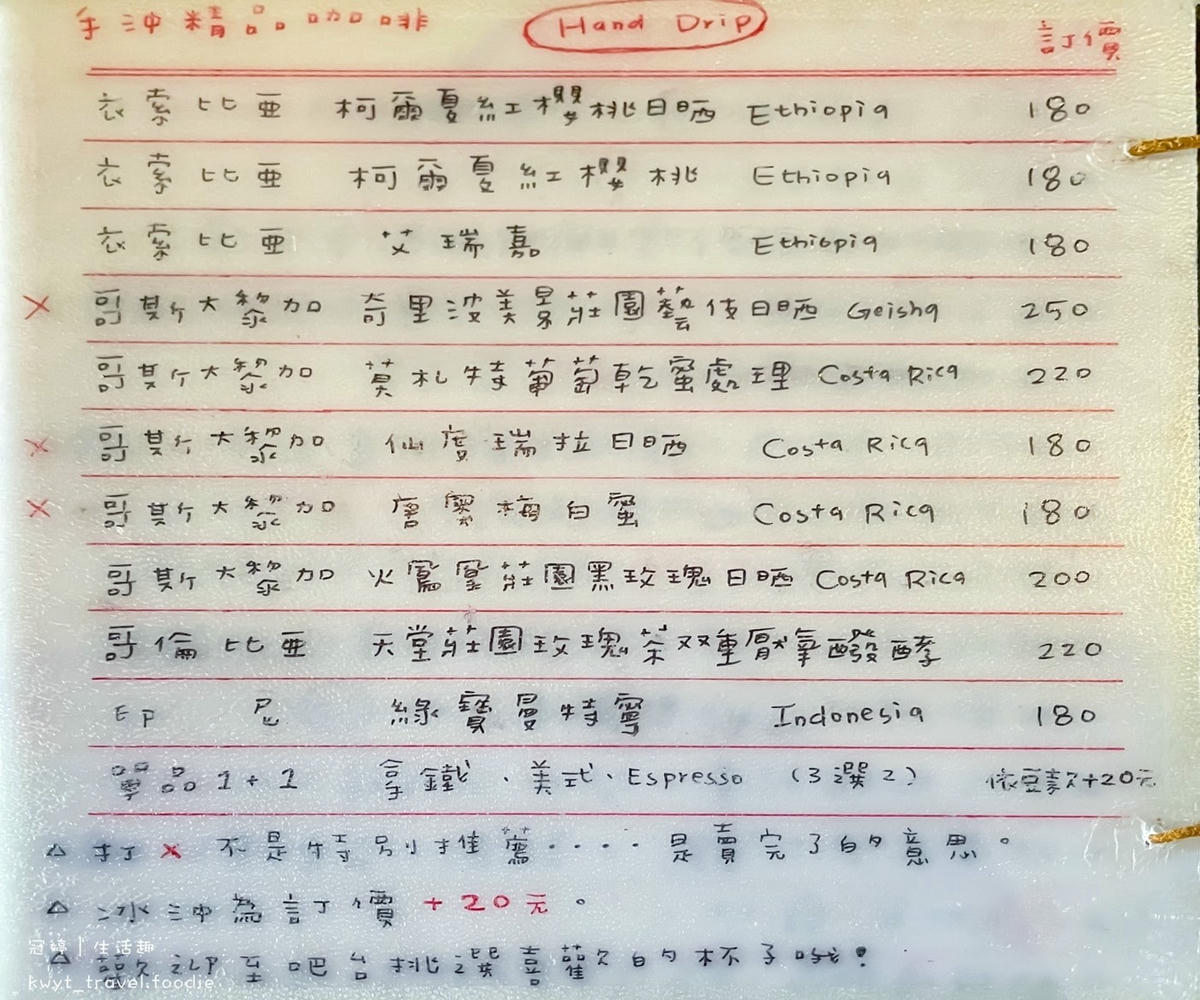 手沖精品咖啡 Hand Drip 訂價
衣索比亞 柯爾夏紅櫻桃日晒 Ethiopia 180
衣索比亞 柯爾夏紅櫻桃 Ethiopia 180
衣索比亞 艾瑞嘉 Ethiopia 180
× 哥斯大黎加 奇里波美景莊園藝伎日晒 Geisha 250
哥斯大黎加 莫札特葡萄乾蜜處理 Costa Rica 220
× 哥斯大黎加 仙度瑞拉日晒 Costa Rica 180
× 哥斯大黎加 梅白蜜 Costa Rica 180
哥斯大黎加 火鳳凰莊園黑玫瑰日晒 Costa Rica 200
哥倫比亞 天堂莊園玫瑰茶双重厭氧醱酵 220
印尼 綠寶曼特寧 Indonesia 180
單品1+1 拿鐵、美式、Espresso (3選2) 依豆款+20元
△ 打 × 不是特別推薦····是賣完了的意思。
△ 冰沖為訂價 +20元。
△ 歡迎至吧台挑選喜歡的杯子哦!
冠婷|生活趣
kwyt_travel.foodie